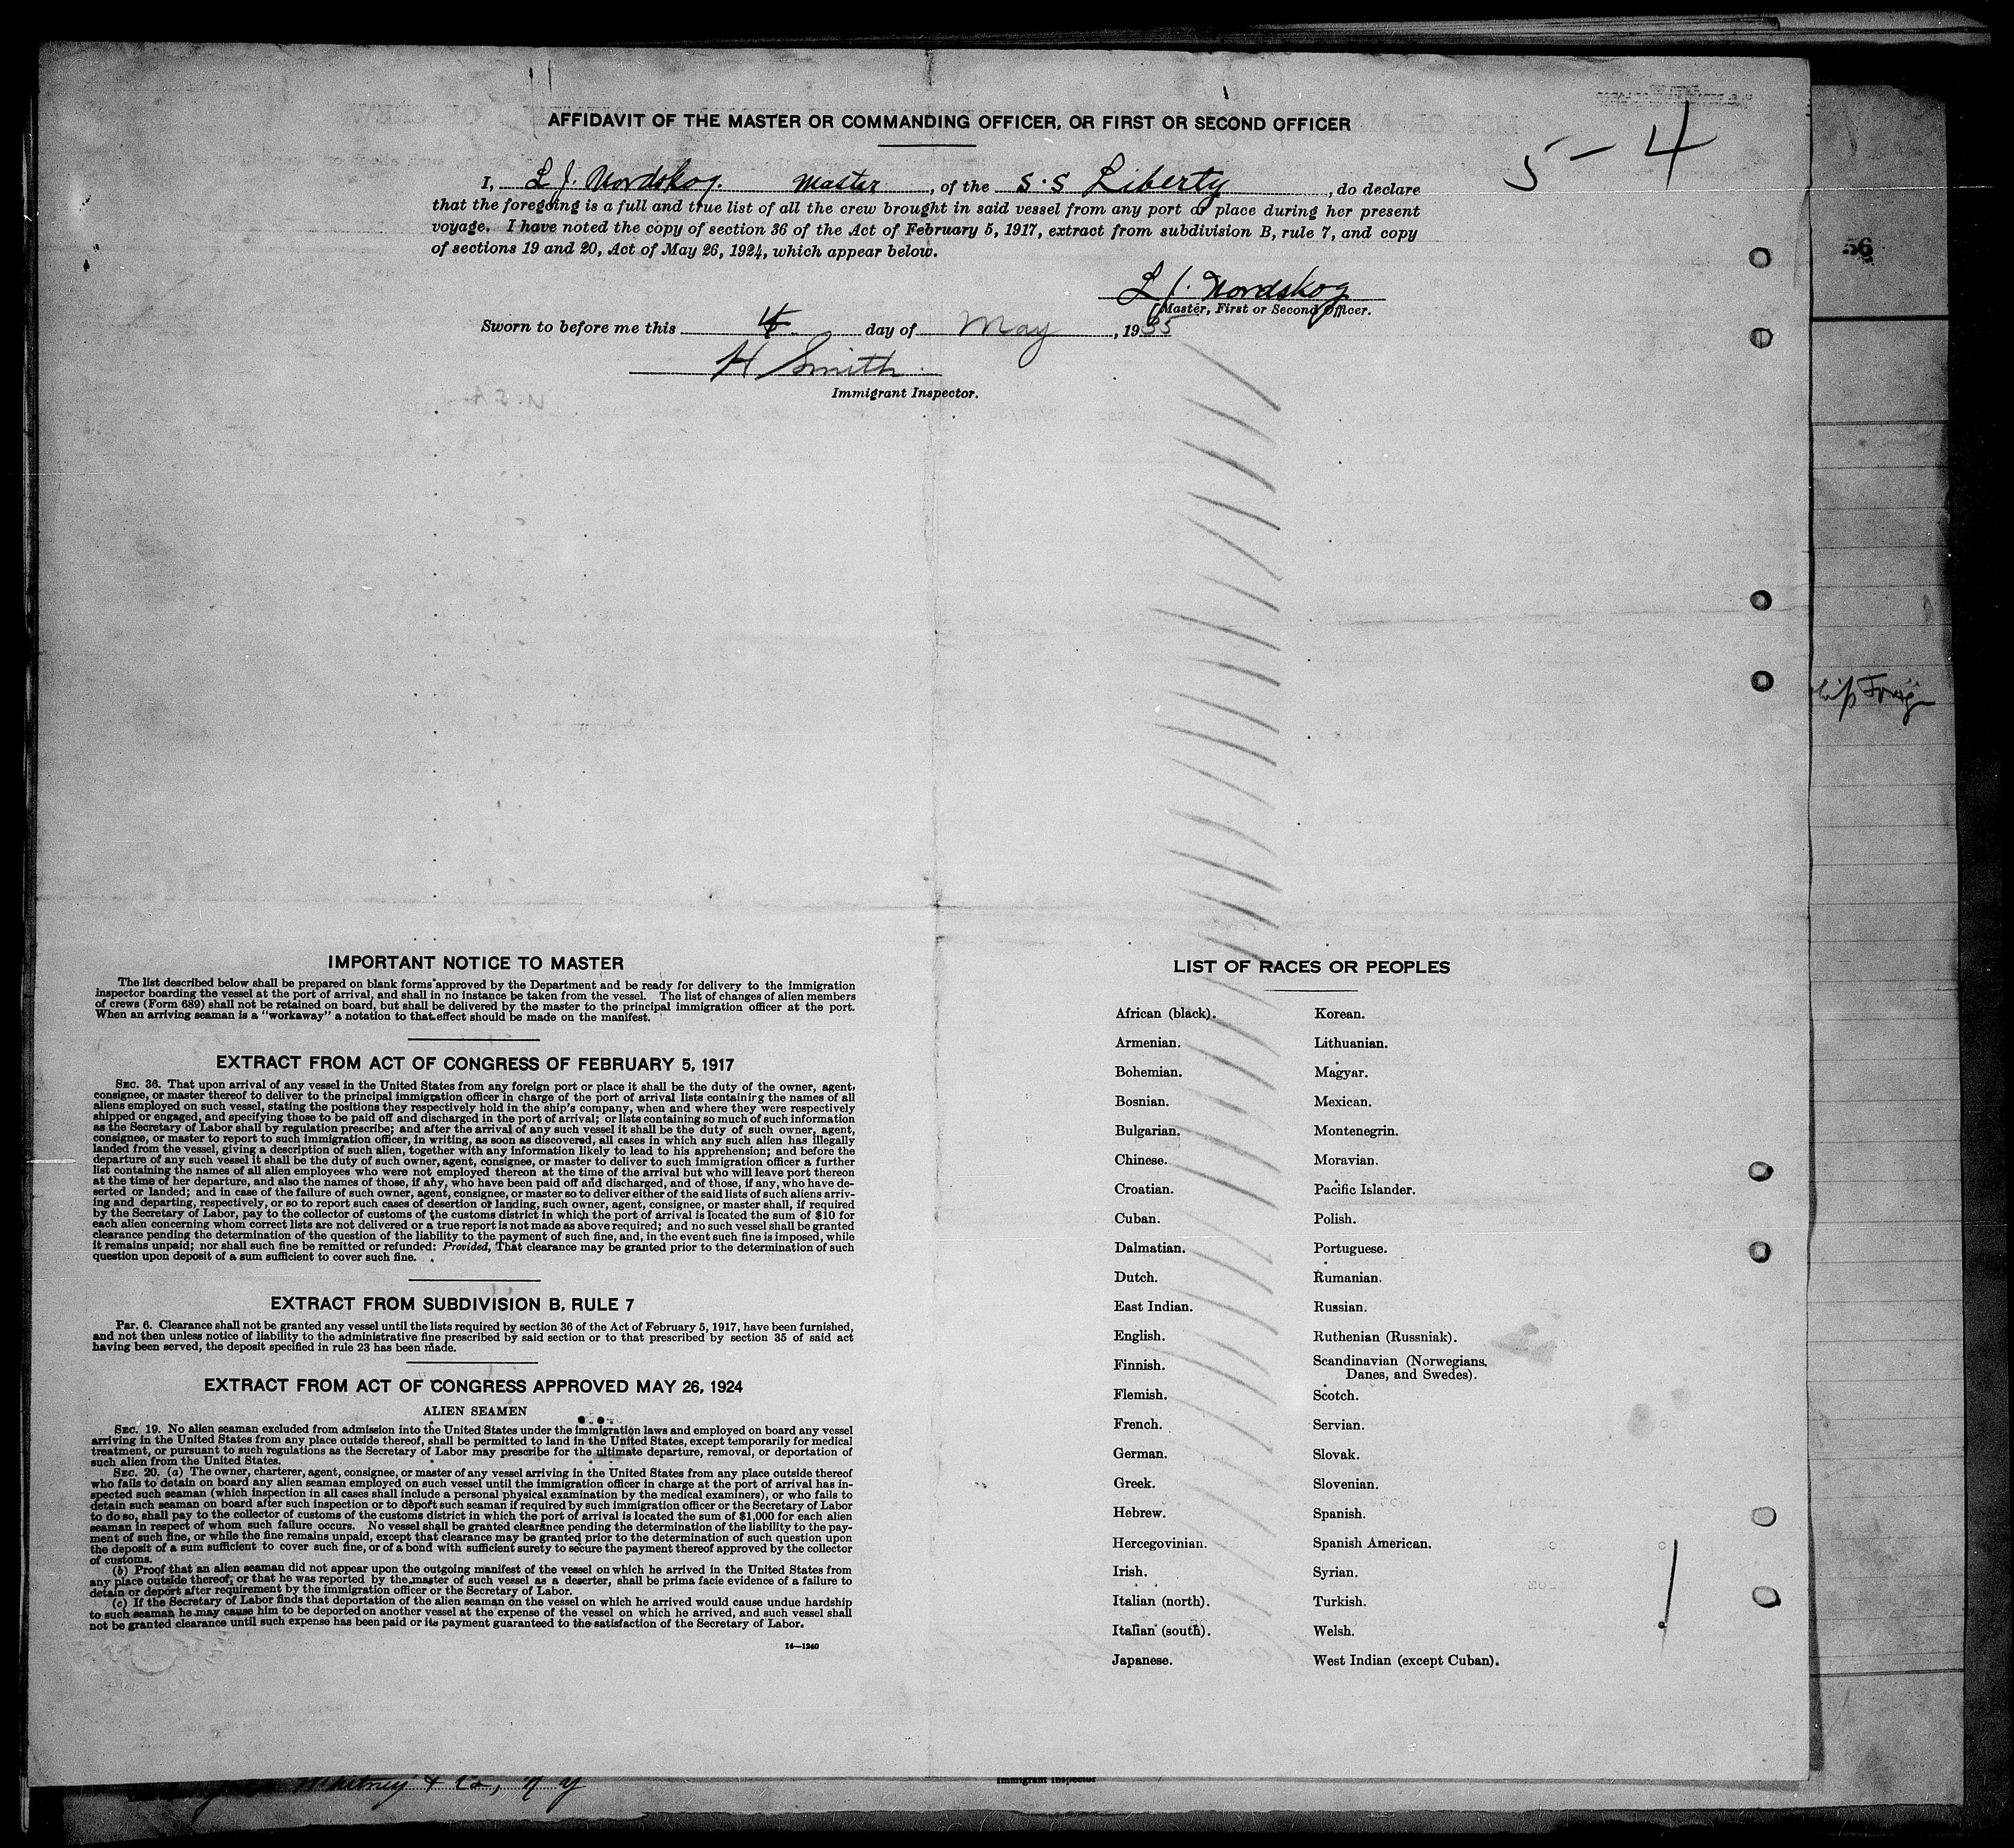 AFFIDAVIT OF THE MASTER OR COMMANDING OFFICER, OR FIRST OR SECOND OFFICER
5 - 4
I, L J. Nordskog. Master, of the S.S Liberty, do declare
that the foregoing is a full and true list of all the crew brought in said vessel from any port or place during her present
voyage. I have noted the copy of section 36 of the Act of February 5, 1917, extract from subdivision B, rule 7, and copy
of sections 19 and 20, Act of May 26, 1924, which appear below.
56
L J. Nordskog
(Master, First or Second Officer.
Sworn to before me this 4 day of May, 1935
H Smith
Immigrant Inspector.
IMPORTANT NOTICE TO MASTER
The list described below shall be prepared on blank forms approved by the Department and be ready for delivery to the immigration
inspector boarding the vessel at the port of arrival, and shall in no instance be taken from the vessel. The list of changes of alien members
of crews (Form 689) shall not be retained on board, but shall be delivered by the master to the principal immigration officer at the port.
When an arriving seaman is a "workaway" a notation to that effect should be made on the manifest.
EXTRACT FROM ACT OF CONGRESS OF FEBRUARY 5, 1917
SEC. 36. That upon arrival of any vessel in the United States from any foreign port or place it shall be the duty of the owner, agent,
consignee, or master thereof to deliver to the principal immigration officer in charge of the port of arrival lists containing the names of all
aliens employed on such vessel, stating the positions they respectively hold in the ship's company, when and where they were respectively
shipped or engaged, and specifying those to be paid off and discharged in the port of arrival; or lists containing so much of such information
as the Secretary of Labor shall by regulation prescribe; and after the arrival of any such vessel it shall be the duty of such owner, agent,
consignee, or master to report to such immigration officer, in writing, as soon as discovered, all cases in which any such alien has illegally
landed from the vessel, giving a description of such alien, together with any information likely to lead to his apprehension; and before the
departure of any such vessel it shall be the duty of such owner, agent, consignee, or master to deliver to such immigration officer a further
list containing the names of all alien employees who were not employed thereon at the time of the arrival but who will leave port thereon
at the time of her departure, and also the names of those, if any, who have been paid off and discharged, and of those, if any, who have de-
serted or landed; and in case of the failure of such owner, agent, consignee, or master so to deliver either of the said lists of such aliens arriv-
ing and departing, respectively, or so to report such cases of desertion or landing, such owner, agent, consignee, or master shall, if required
by the Secretary of Labor, pay to the collector of customs of the customs district in which the port of arrival is located the sum of $10 for
each alien concerning whom correct lists are not delivered or a true report is not made as above required; and no such vessel shall be granted
clearance pending the determination of the question of the liability to the payment of such fine, and, in the event such fine is imposed, while
it remains unpaid; nor shall such fine be remitted or refunded: Provided, That clearance may be granted prior to the determination of such
question upon deposit of a sum sufficient to cover such fine.
EXTRACT FROM SUBDIVISION B, RULE 7
Par. 6. Clearance shall not be granted any vessel until the lists required by section 36 of the Act of February 5, 1917, have been furnished,
and not then unless notice of liability to the administrative fine prescribed by said section or to that prescribed by section 35 of said act
having been served, the deposit specified in rule 23 has been made.
EXTRACT FROM ACT OF CONGRESS APPROVED MAY 26, 1924
ALIEN SEAMEN
SEC. 19. No alien seaman excluded from admission into the United States under the immigration laws and employed on board any vessel
arriving in the United States from any place outside thereof, shall be permitted to land in the United States, except temporarily for medical
treatment, or pursuant to such regulations as the Secretary of Labor may prescribe for the ultimate departure, removal, or deportation of
such alien from the United States.
SEC. 20. (a) The owner, charterer, agent, consignee, or master of any vessel arriving in the United States from any place outside thereof
who fails to detain on board any alien seaman employed on such vessel until the immigration officer in charge at the port of arrival has in-
spected such seaman (which inspection in all cases shall include a personal physical examination by the medical examiners), or who fails to
detain such seaman on board after such inspection or to deport such seaman if required by such immigration officer or the Secretary of Labor
to do so, shall pay to the collector of customs of the customs district in which the port of arrival is located the sum of $1,000 for each alien
seaman in respect of whom such failure occurs. No vessel shall be granted clearance pending the determination of the liability to the pay-
ment of such fine, or while the fine remains unpaid, except that clearance may be granted prior to the determination of such question upon
the deposit of a sum sufficient to cover such fine, or of a bond with sufficient surety to secure the payment thereof approved by the collector
of customs.
(b) Proof that an alien seaman did not appear upon the outgoing manifest of the vessel on which he arrived in the United States from
any place outside thereof, or that he was reported by the master of such vessel as a deserter, shall be prima facie evidence of a failure to
detain or deport after requirement by the immigration officer or the Secretary of Labor.
(c) If the Secretary of Labor finds that deportation of the alien seaman on the vessel on which he arrived would cause undue hardship
to such seaman he may cause him to be deported on another vessel at the expense of the vessel on which he arrived, and such vessel shall
not be granted clearance until such expense has been paid or its payment guaranteed to the satisfaction of the Secretary of Labor.
14—1240
LIST OF RACES OR PEOPLES
African (black).
Armenian.
Bohemian.
Bosnian.
Bulgarian.
Chinese.
Croatian.
Cuban.
Dalmatian.
Dutch.
East Indian.
English.
Finnish.
Flemish.
French.
German.
Greek.
Hebrew.
Hercegovinian.
Irish.
Italian (north).
Italian (south).
Japanese.
Korean.
Lithuanian.
Magyar.
Mexican.
Montenegrin.
Moravian.
Pacific Islander.
Polish.
Portuguese.
Rumanian.
Russian.
Ruthenian (Russniak).
Scandinavian (Norwegians,
Danes, and Swedes).
Scotch.
Servian.
Slovak.
Slovenian.
Spanish.
Spanish American.
Syrian.
Turkish.
Welsh.
West Indian (except Cuban).
Whitney & Co, N Y
Immigrant Inspector